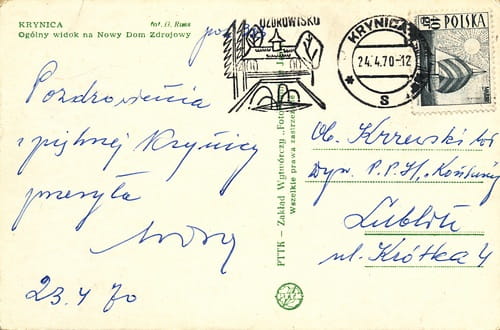 KRYNICA
fot. B. Russ
Ogólny widok na Nowy Dom Zdrojowy
UZDROWISKO
KRYNICA
24.4.70-12
S
POLSKA
40 GR
Pozdrowienia
z pięknej Krynicy
przesyła
23.4 70
PTTK — Zakład Wytwórczy „Foto
Wszelkie prawa zastrzeż
Ob. Krzewski
P.P.H.
Lublin
ul. Krótka 4